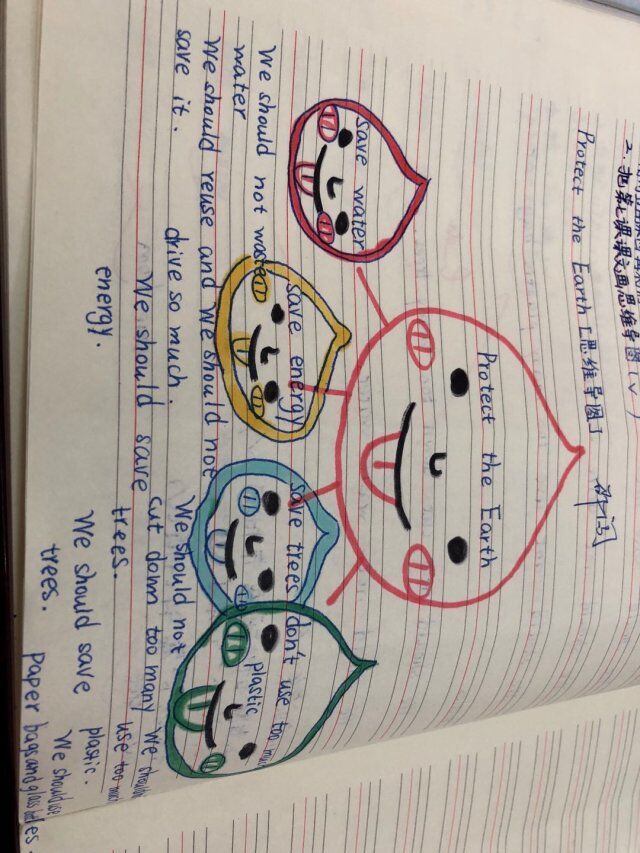 2. 把第七课课文画思维导图(✓)
Protect the Earth「思维导图」
Protect the Earth
save water
save energy
save trees
don't use too much
plastic
We should not waste
water
We should reuse and
save it.
We should not
drive so much.
We should save
energy.
We should not
cut down too many
trees.
We should save
trees.
We should
use too much
plastic.
We should use
paper bags and glass bottles.